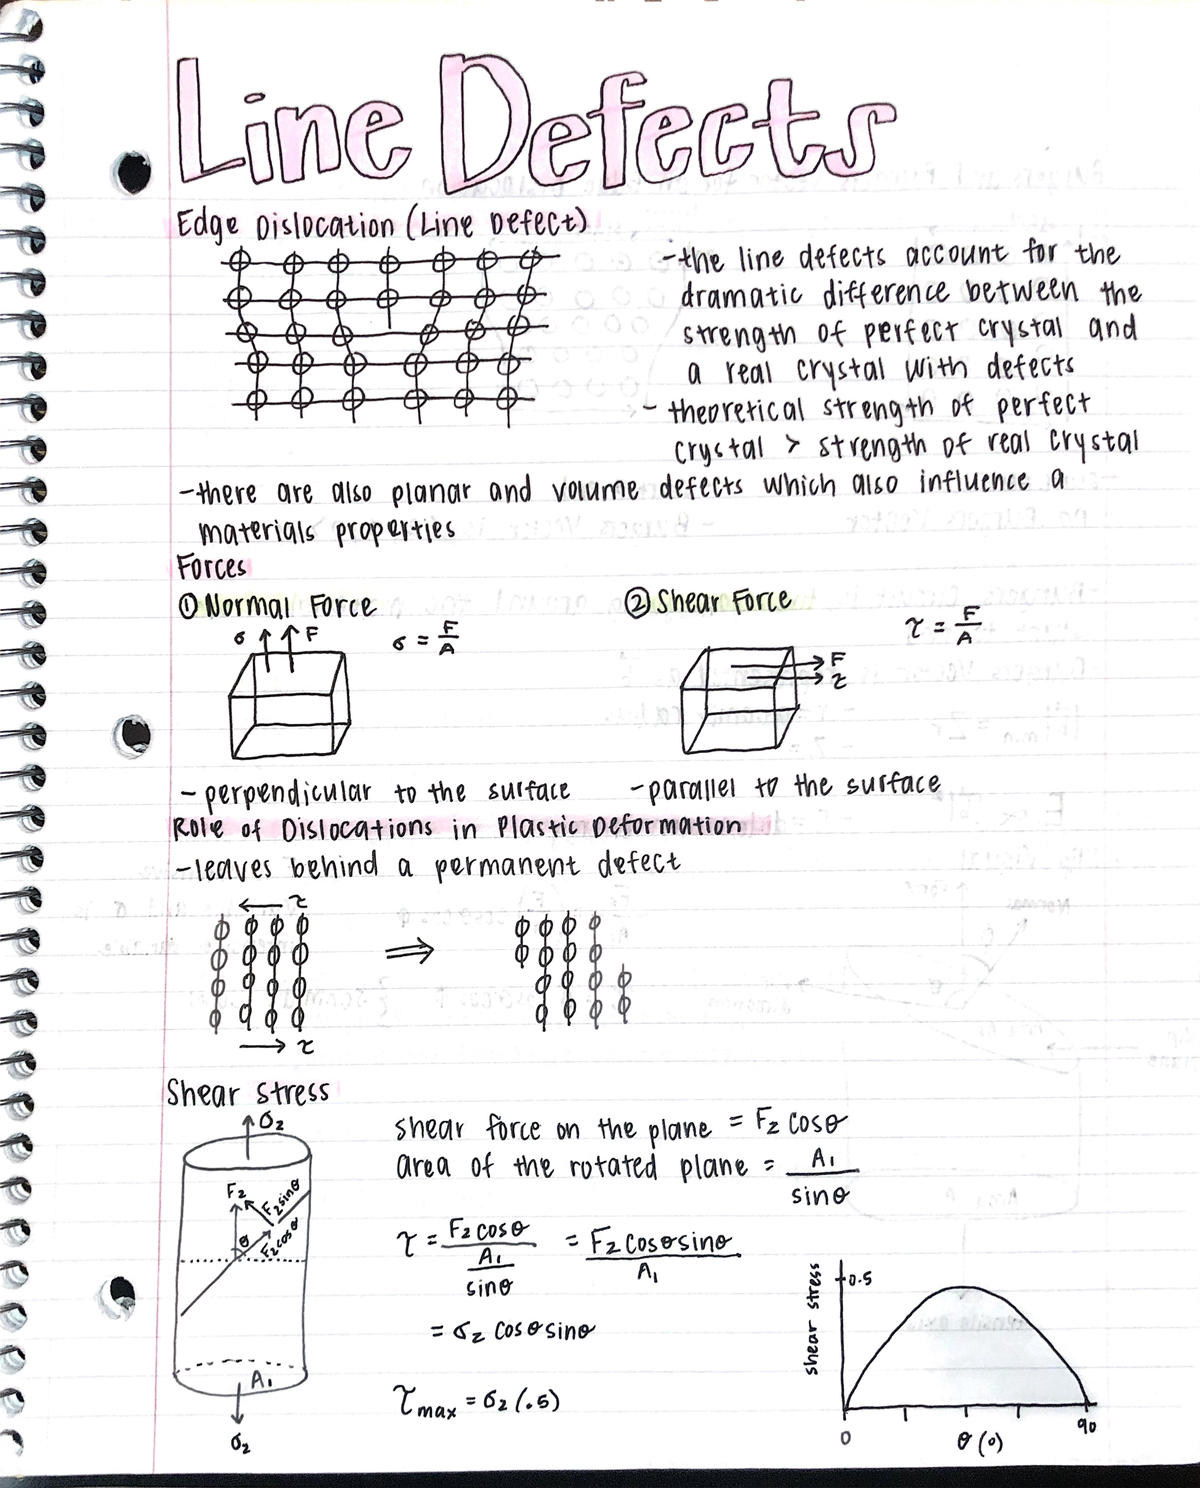 Line Defects
Edge Dislocation (Line Defect)
-the line defects account for the
dramatic difference between the
strength of perfect crystal and
a real crystal with defects
- theoretical strength of perfect
crystal > strength of real crystal
-there are also planar and volume defects which also influence a
materials properties
Forces
① Normal Force
σ F
σ = F/A
② Shear Force
τ = F/A
F
τ
- perpendicular to the surface
-parallel to the surface
Role of Dislocations in Plastic Deformation
-leaves behind a permanent defect
← τ
⇒
→ τ
Shear stress
σz
Fz
Fz sinθ
θ
Fz cosθ
A₁
σz
shear force on the plane = Fz cosθ
area of the rotated plane = A₁/sinθ
τ = Fz cosθ / (A₁/sinθ) = Fz cosθ sinθ / A₁
= σz cosθ sinθ
τmax = σz (.5)
shear stress
0.5
0
90
θ (°)